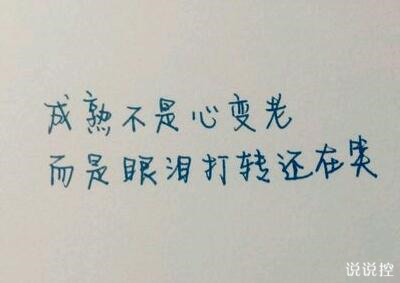 成熟不是心变老
而是眼泪打转还在笑
说说控